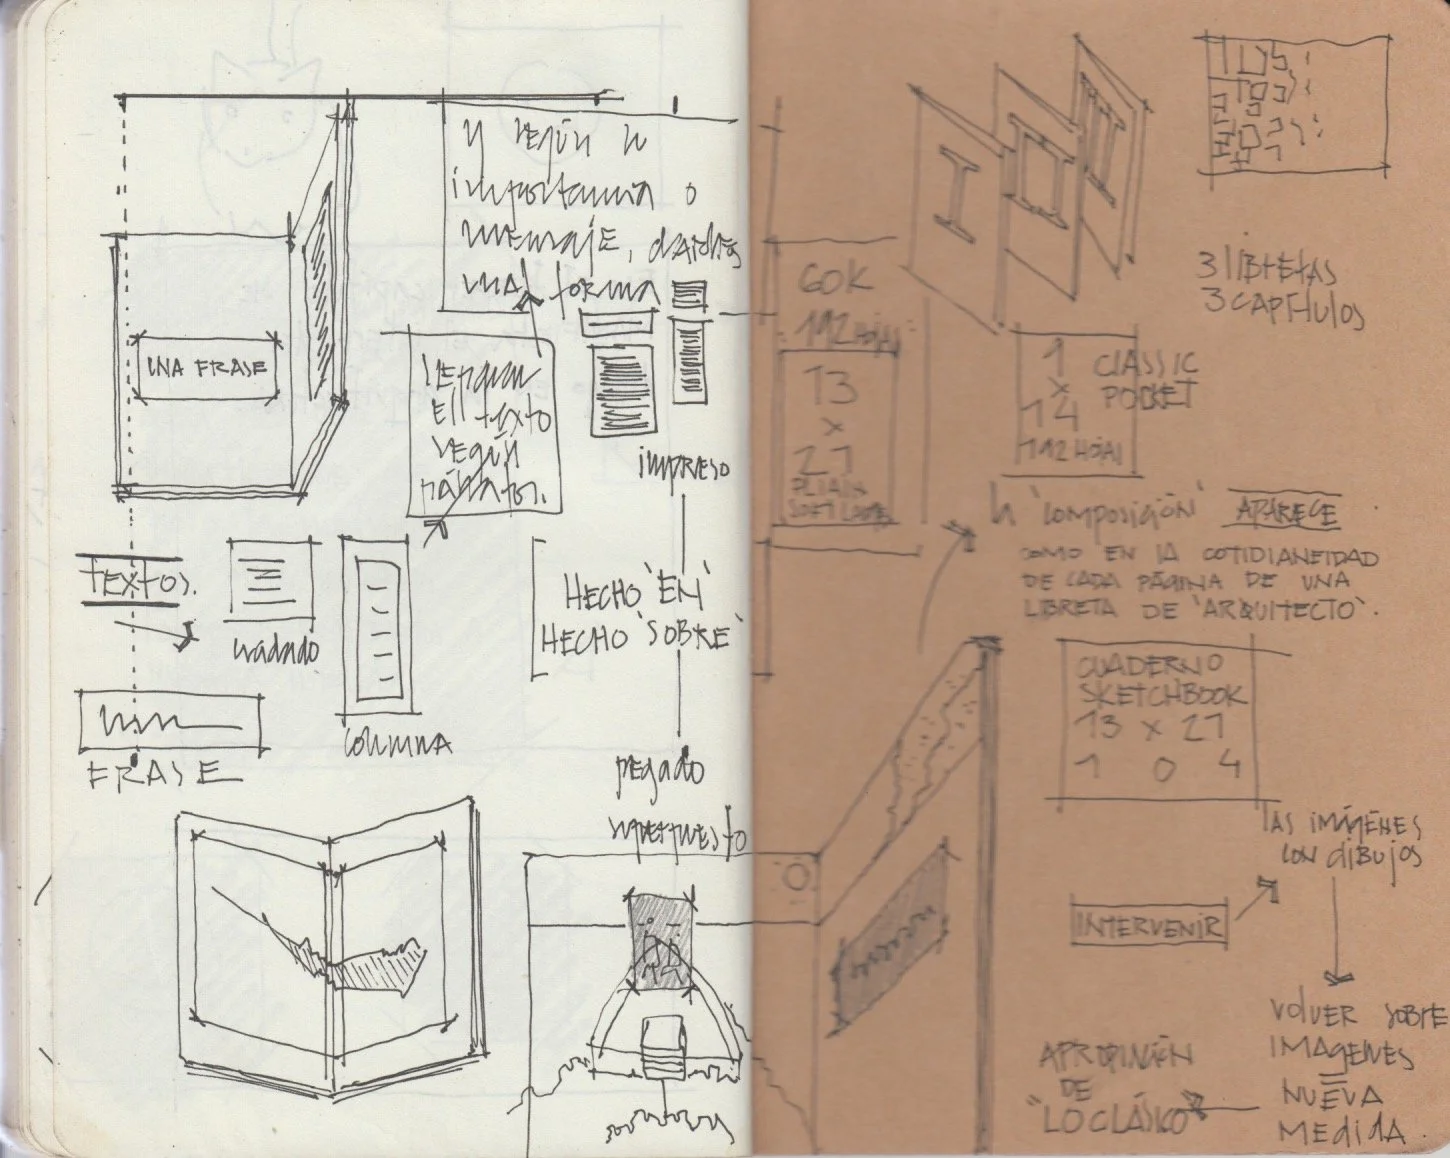 y según la
importancia o
mensaje, darles
una forma
UNA FRASE
el texto
según
párrafos.
impreso
TEXTOS.
COLUMNA
FRASE
HECHO 'EN'
HECHO 'SOBRE'
pegado
superpuesto
3 LIBRETAS
3 CAPÍTULOS
60K
192 HOJAS
13
x
21
PLAIN
SOFT
1
x
14
192 HOJAS
CLASSIC
POCKET
la 'composición' APARECE
COMO EN LA COTIDIANEIDAD
DE CADA PÁGINA DE UNA
LIBRETA DE 'ARQUITECTO'.
CUADERNO
SKETCHBOOK
13 x 21
1 0 4
LAS IMÁGENES
CON DIBUJOS
INTERVENIR
VOLVER SOBRE
IMAGENES
NUEVA
MEDIDA.
DE
"LO CLÁSICO"